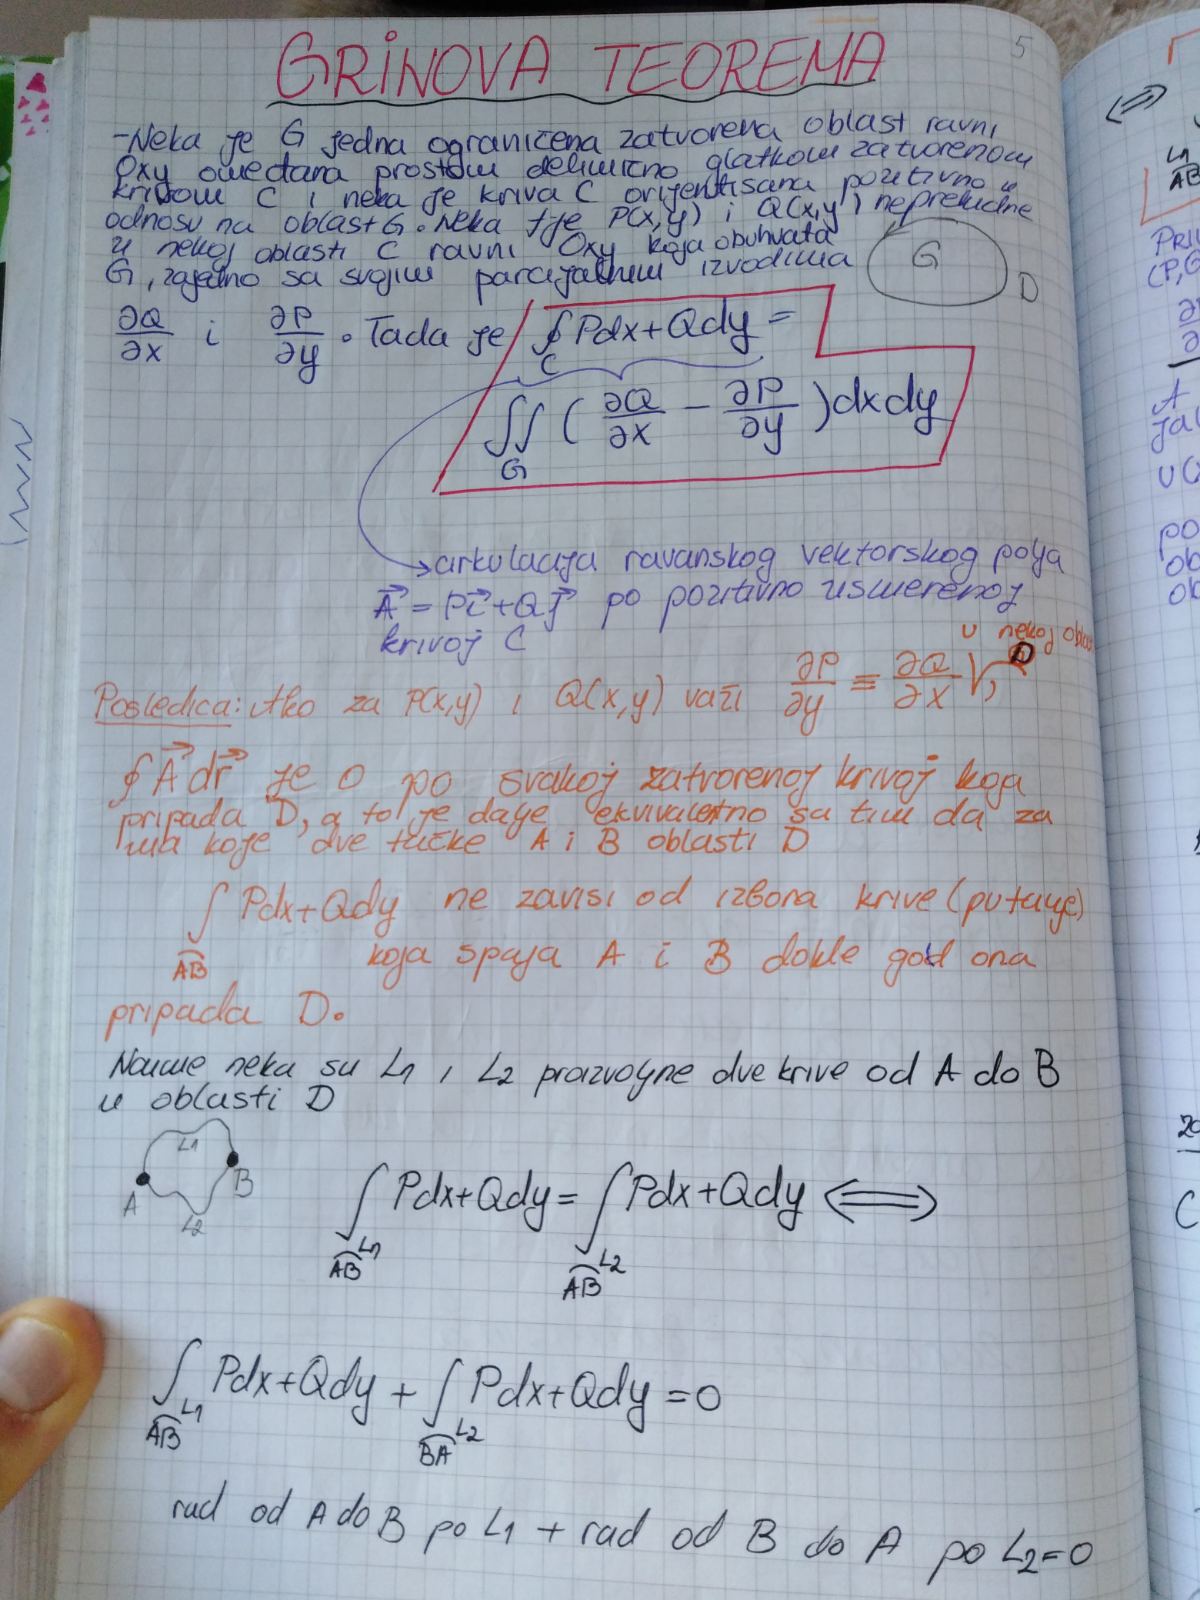 5
GRINOVA TEOREMA
-Neka je G jedna ograničena zatvorena oblast ravni
Oxy oivičena prostom delimično glatkom zatvorenom
krivom C i neka je kriva C orijentisana pozitivno u
odnosu na oblast G. Neka f-je P(x,y) i Q(x,y) neprekidne
u nekoj oblasti C ravni Oxy koja obuhvata
G, zajedno sa svojim parcijalnim izvodima
G D
∂Q/∂x i ∂P/∂y. Tada je ∮_C Pdx+Qdy =
∬_G (∂Q/∂x - ∂P/∂y) dxdy
→ cirkulacija ravanskog vektorskog polja
A⃗ = Pi⃗+Qj⃗ po pozitivno usmerenoj
krivoj C
u nekoj oblas
Posledica: Ako za P(x,y) i Q(x,y) važi ∂P/∂y ≡ ∂Q/∂x D,
∮A⃗dr⃗ je 0 po svakoj zatvorenoj krivoj koja
pripada D, a to je dalje ekvivaletno sa tim da za
ma koje dve tučke A i B oblasti D
∫_AB Pdx+Qdy ne zavisi od izbora krive (putanje)
koja spaja A i B dokle god ona
pripada D.
Naime neka su L1 i L2 proizvoljne dve krive od A do B
u oblasti D
A L1 B L2
∫_AB^L1 Pdx+Qdy = ∫_AB^L2 Pdx+Qdy ⟺
∫_AB^L1 Pdx+Qdy + ∫_BA^L2 Pdx+Qdy = 0
rad od A do B po L1 + rad od B do A po L2=0